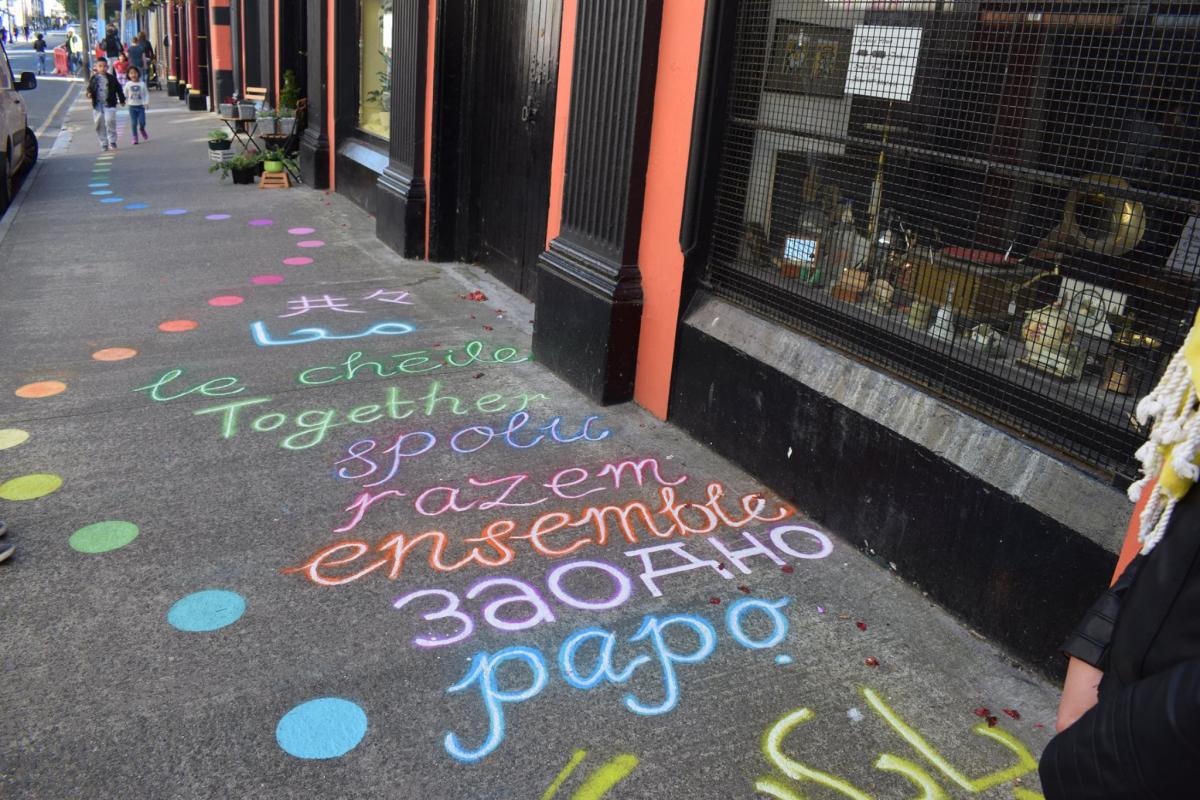 共々
معا
le chéile
Together
spolu
razem
ensemble
заодно
papọ